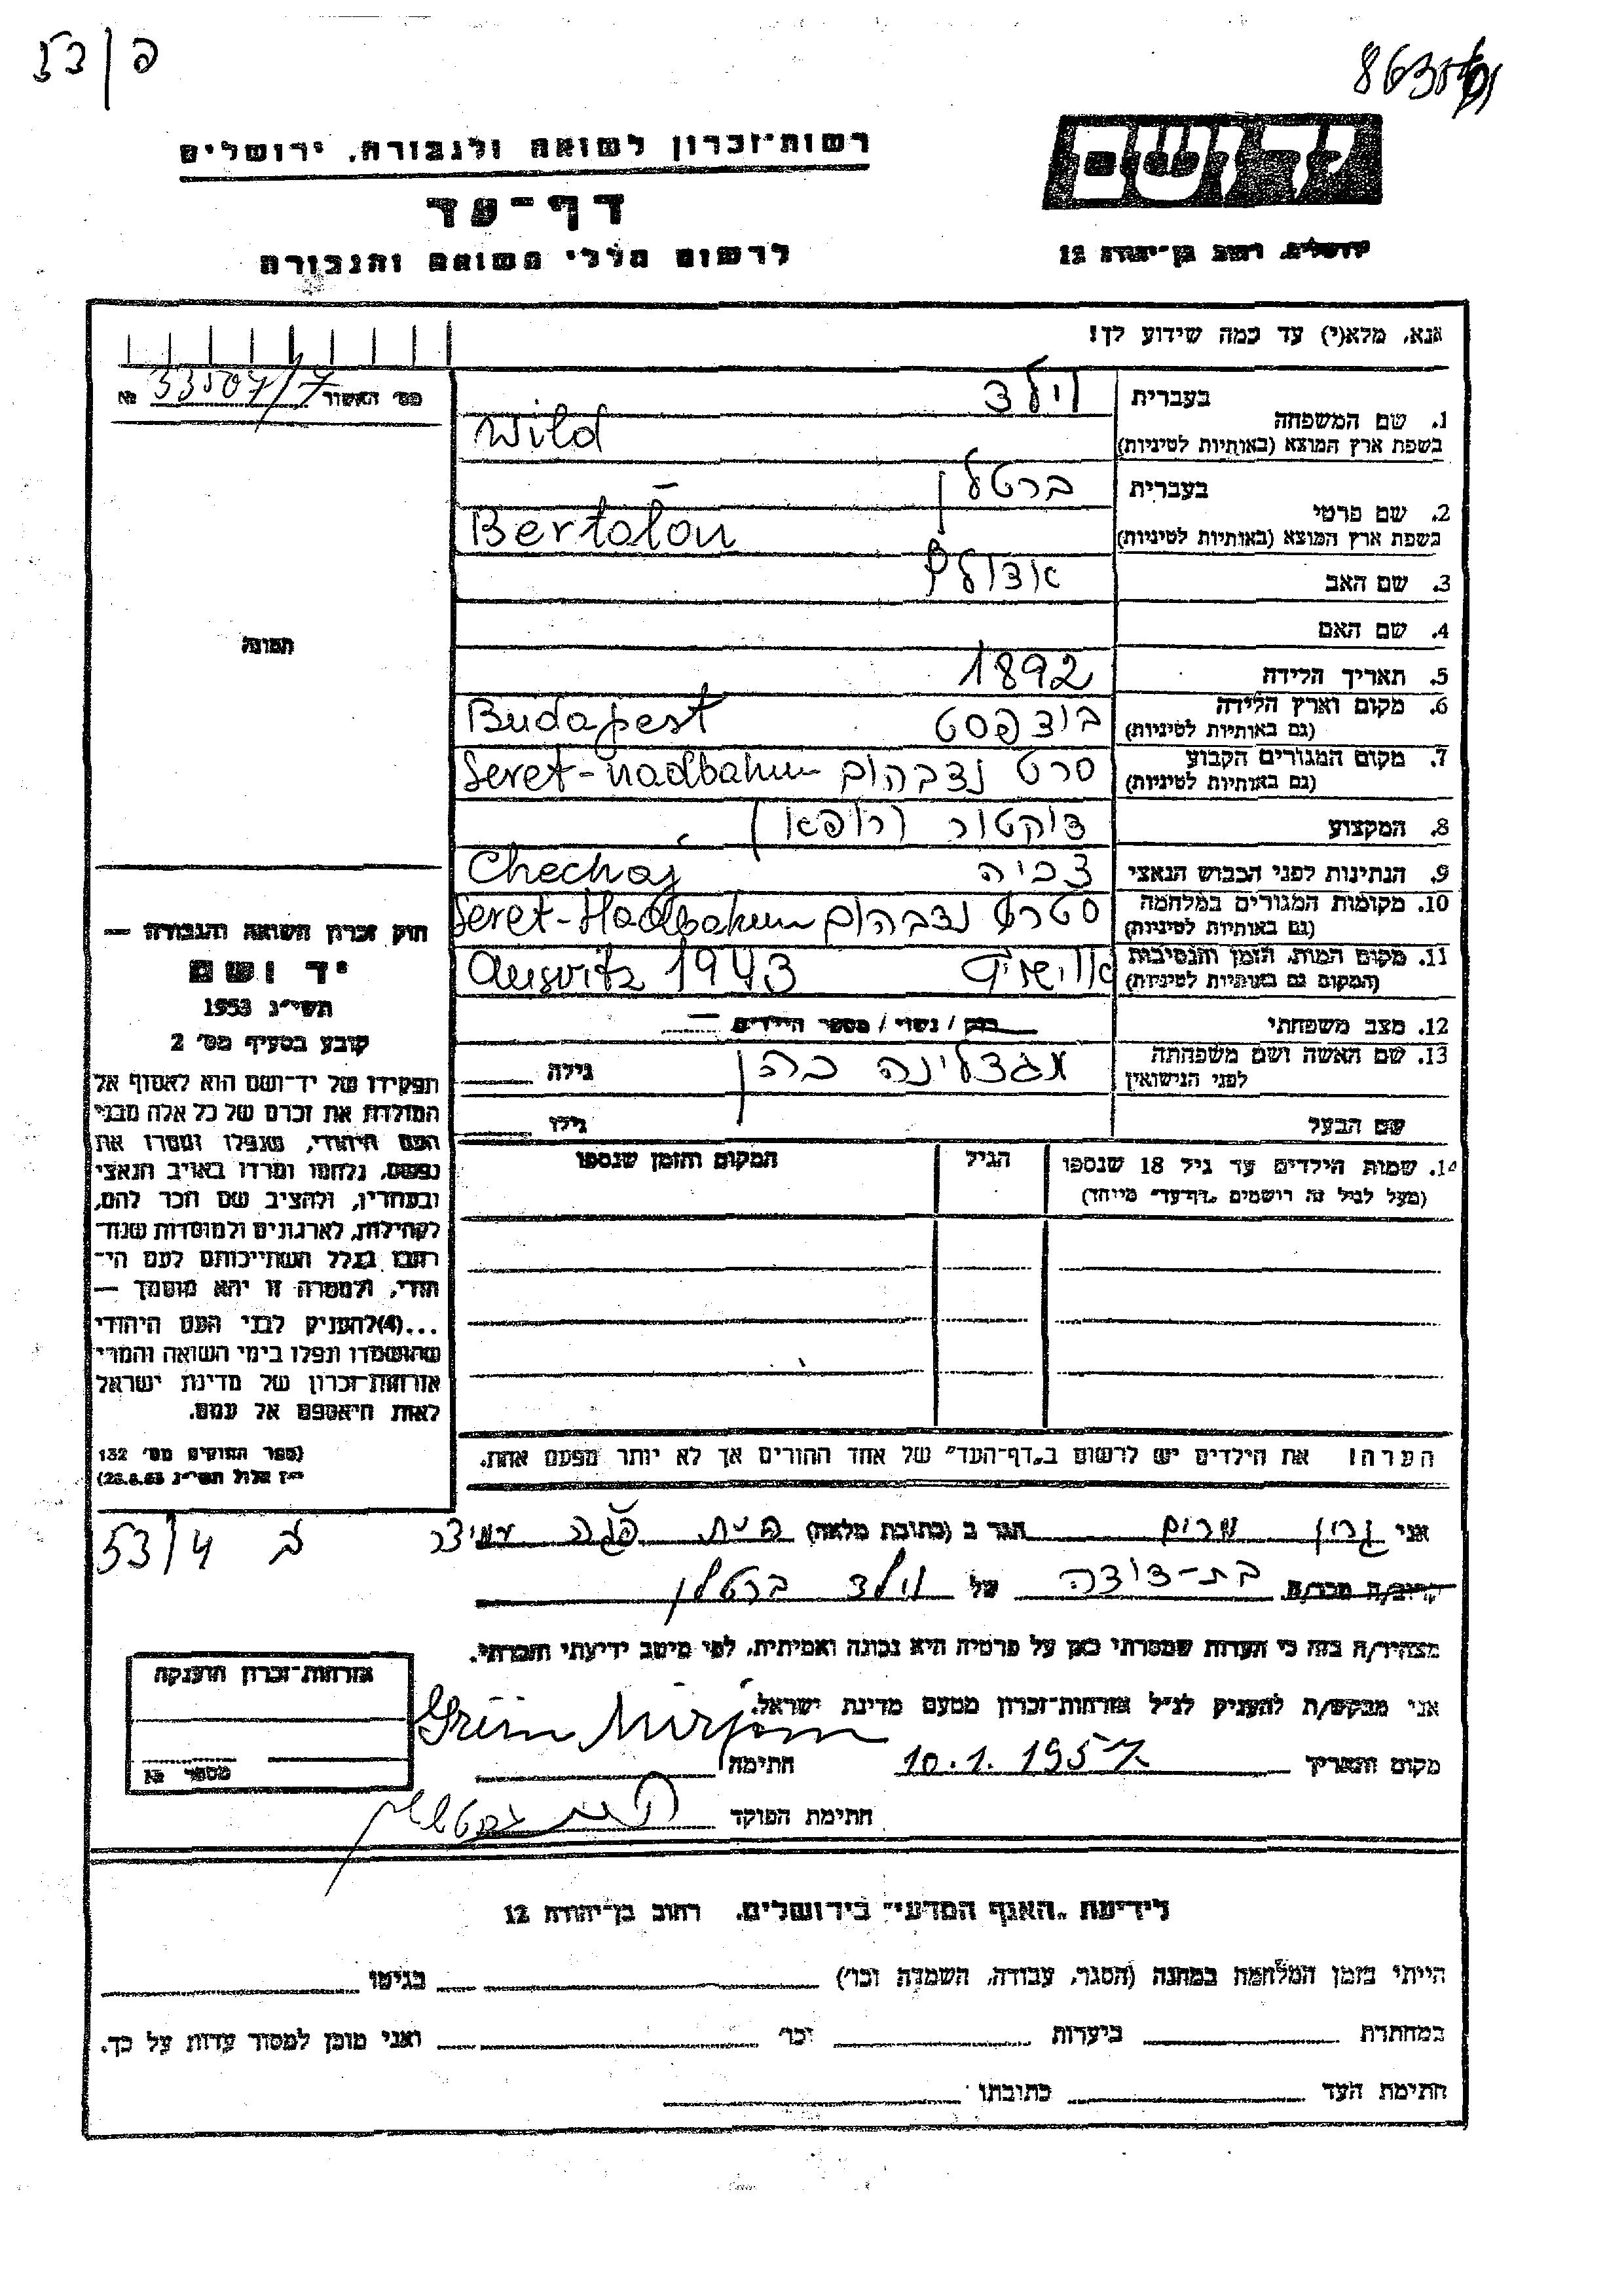 53/פ
יד ושם
רשות־זכרון לשואה ולגבורה, ירושלים
דף־עד
לרשום חללי השואה והגבורה
ירושלים, רחוב בן־יהודה 12
אנא, מלא(י) עד כמה שידוע לך!
מס׳ האשור 33507/7 №
1. שם המשפחה
בעברית וילד
בשפת ארץ המוצא (באותיות לטיניות) Wild
2. שם פרטי
בעברית ברטלן
בשפת ארץ המוצא (באותיות לטיניות) Bertalon
3. שם האב אדולף
4. שם האם
5. תאריך הלידה 1892
6. מקום וארץ הלידה (גם באותיות לטיניות) בודפסט Budapest
7. מקום המגורים הקבוע (גם באותיות לטיניות) סרט נדבהום Seret-nadbahum
8. המקצוע דוקטור (רופא)
9. הנתינות לפני הכבוש הנאצי צכיה Chechaj
10. מקומות המגורים במלחמה (גם באותיות לטיניות) נדבהום Seret-Hadbahum
11. מקום המות, הזמן והנסיבות (המקום גם באותיות לטיניות) Ausvitz 1943
12. מצב משפחתי רווק / נשוי / מספר הילדים —
13. שם האשה ושם משפחתה לפני הנישואין מגדלינה כהן גילה
שם הבעל גילו
14. שמות הילדים עד גיל 18 שנספו
(מעל לגיל זה רושמים „דף־עד” מייחד)
הגיל
המקום והזמן שנספו
הערה: את הילדים יש לרשום ב„דף־העד” של אחד ההורים אך לא יותר מפעם אחת.
התמונה
חוק זכרון השואה והגבורה —
יד ושם
תשי״ג 1953
קובע בסעיף מס׳ 2
תפקידו של יד־ושם הוא לאסוף אל
המולדת את זכרם של כל אלה מבני
העם היהודי, שנפלו ומסרו את
נפשם, נלחמו ומרדו באויב הנאצי
ובעוזריו, ולהציב שם וזכר להם,
לקהילות, לארגונים ולמוסדות שנח־
רבו בגלל השתייכותם לעם הי־
הודי, ולמטרה זו יהא מוסמך —
...(4) להעניק לבני העם היהודי
שהושמדו ונפלו בימי השואה והמרי
אזרחות־זכרון של מדינת ישראל
לאות היאספם אל עמם.
(ספר החוקים מס׳ 132
י״ז אלול תשי״ג 28.8.53)
53/4
אני גרין מרים הגר ב (כתובת מלאה)
קרוב/ה מכר/ה בת-דודה של וילד ברטלן
מצהיר/ה בזה כי העדות שמסרתי כאן על פרטיה היא נכונה ואמיתית, לפי מיטב ידיעתי והכרתי.
אני מבקש/ת להעניק לנ״ל אזרחות־זכרון מטעם מדינת ישראל.
מקום ותאריך 10.1.1957 חתימה Grün Mirjam
חתימת הפוקד
אזרחות־זכרון הוענקה
מספר №
לידיעת „האגף המדעי” בירושלים, רחוב בן־יהודה 12
הייתי בזמן המלחמה במחנה (הסגר, עבודה, השמדה וכו׳) בגיטו
במחתרת ביערות וכו׳ ואני מוכן למסור עדות על כך.
חתימת העד כתובתו